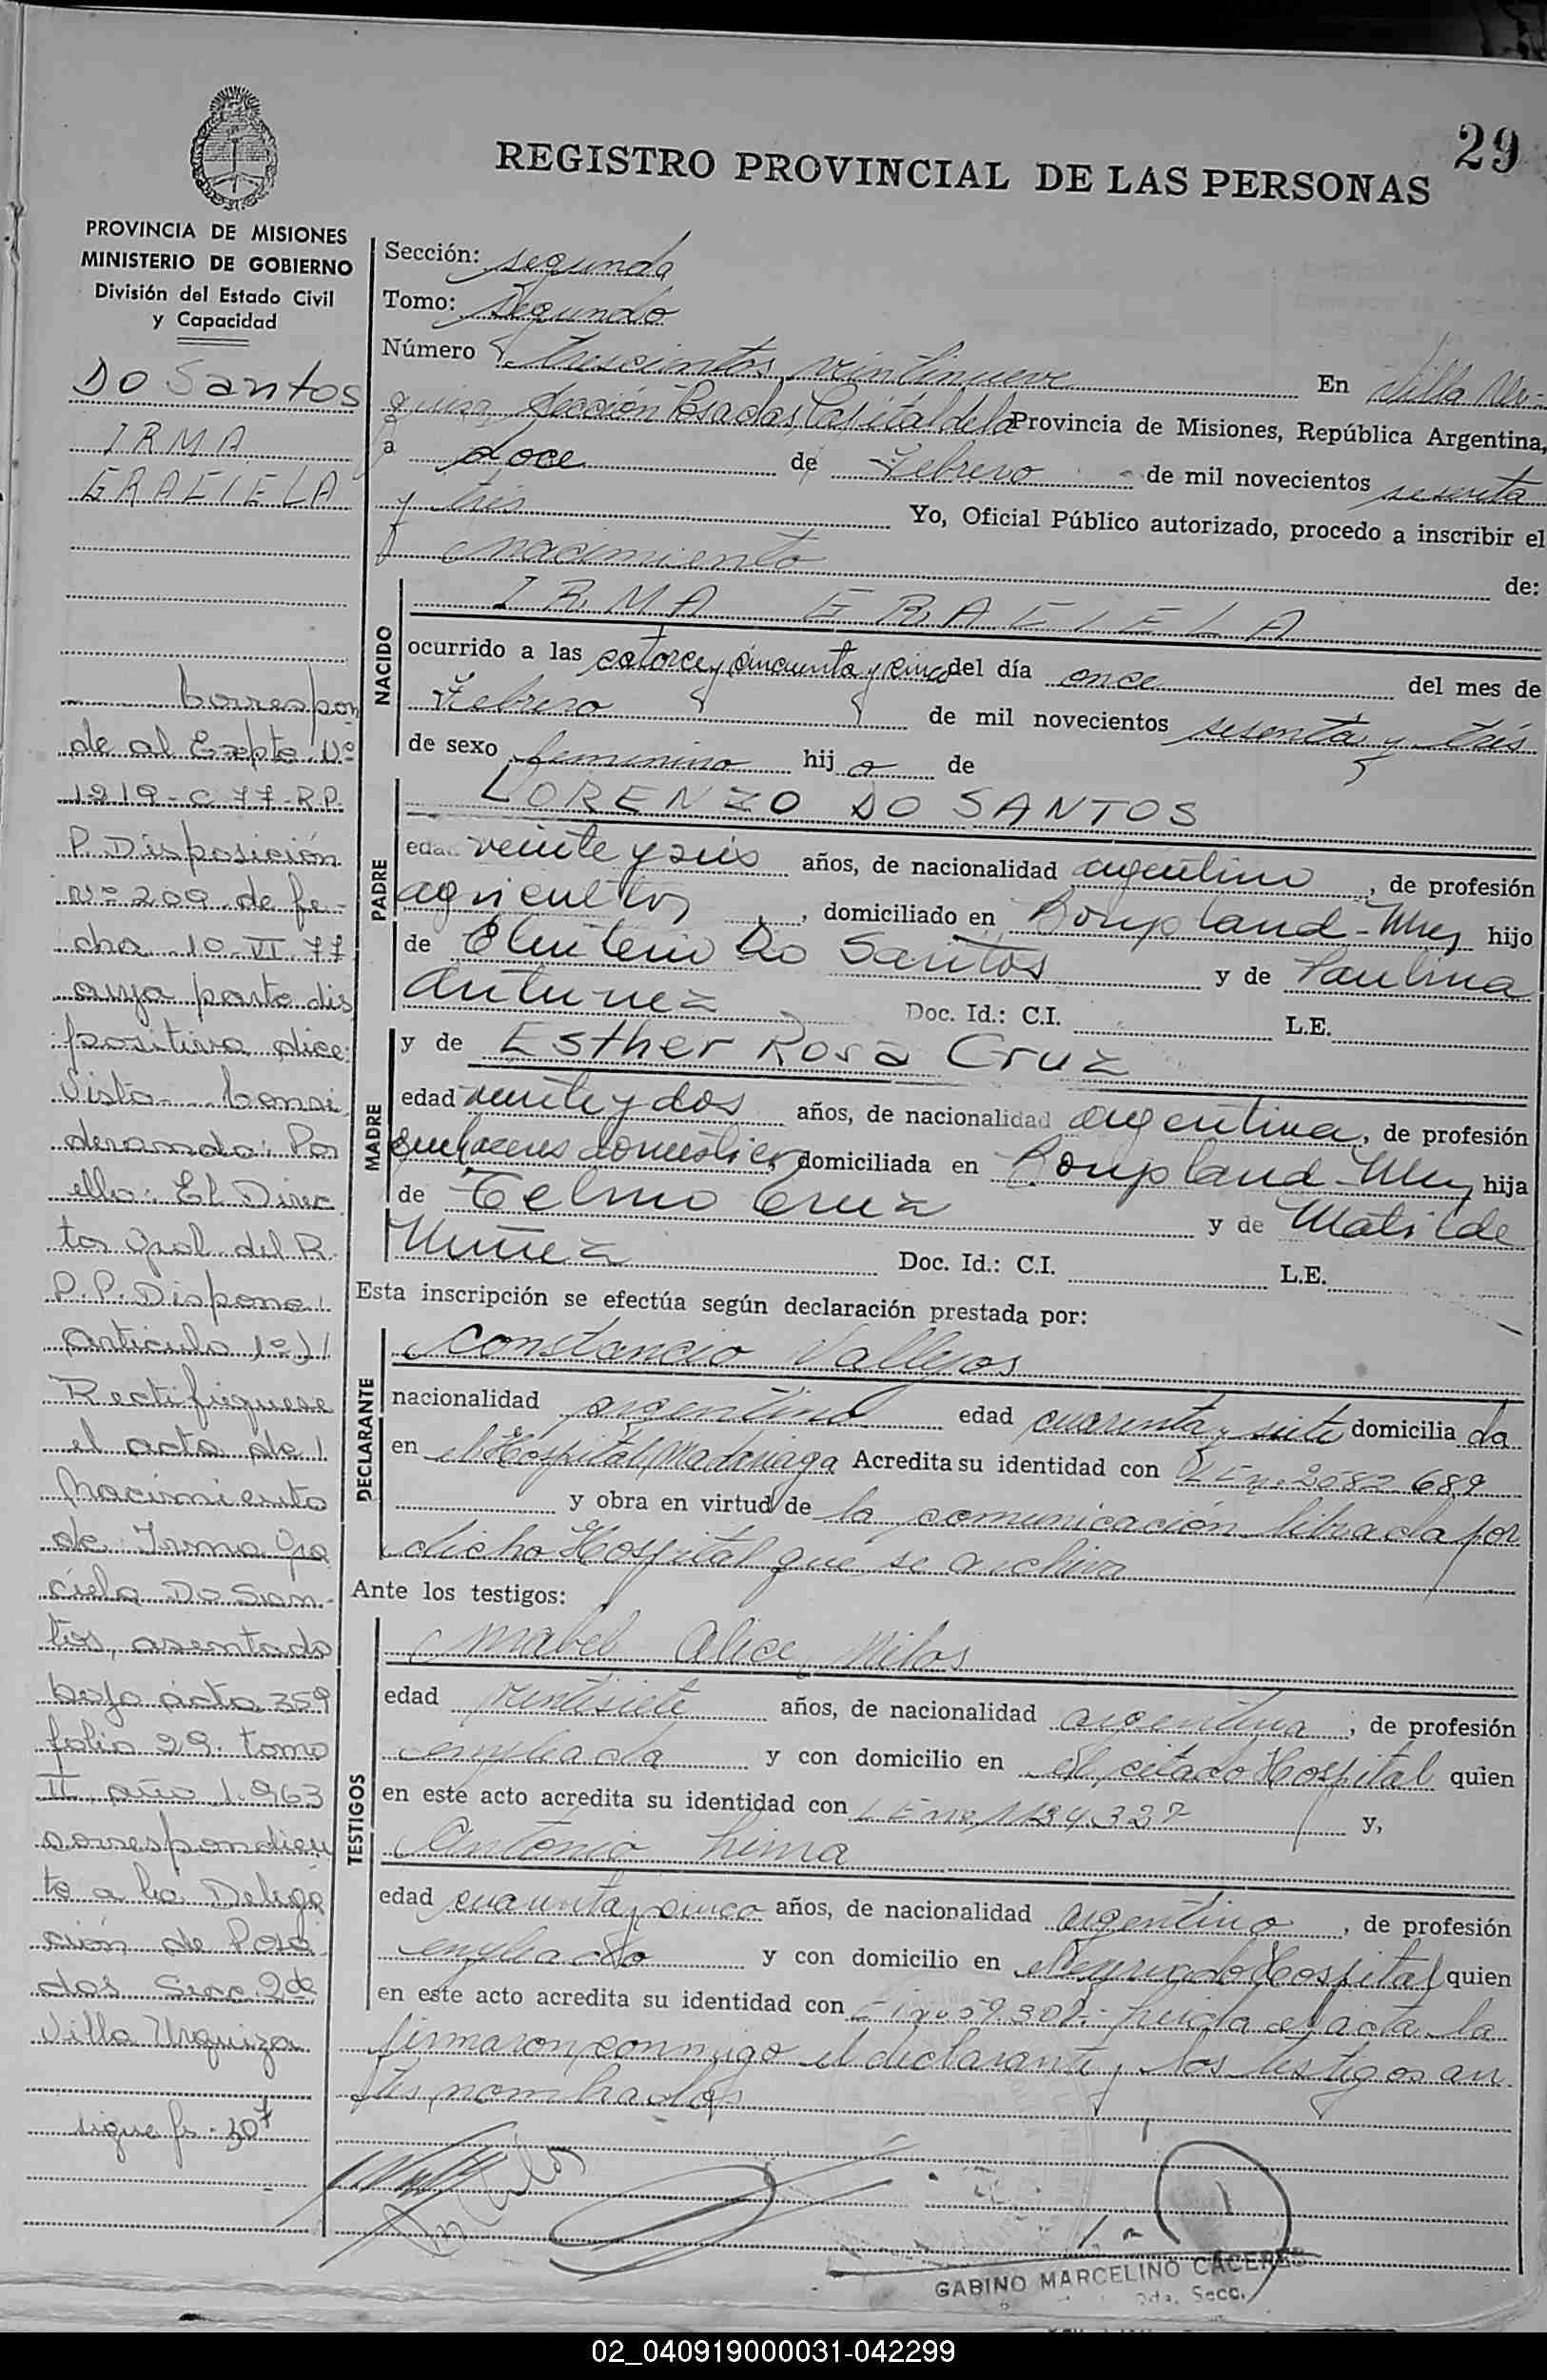 29
REGISTRO PROVINCIAL DE LAS PERSONAS
PROVINCIA DE MISIONES
MINISTERIO DE GOBIERNO
División del Estado Civil
y Capacidad
Do Santos
IRMA
GRACIELA
Correspon
de al Expte. Nº
1219-C-77-R.P.
P. Disposición
Nº 209 de fe-
cha 10-VI-77
cuya parte dis
positiva dice:
Visto... Consi
derando: Por
ello: El Direc
tor Gral del R.
P.P. Dispone:
Artículo 1º)
Rectifíquese
el acta de
Nacimiento
de Irma Gra
ciela Do San-
tos, asentada
bajo acta 359
folio 29. tomo
II, año 1.963
correspondien
te a la Delega
ción de Posa
das Secc. 2da
Villa Urquiza
sigue fs. 30
Sección: segunda
Tomo: Segundo
Número trescientos veintinueve En Villa Ur-
quiza, Sección Posadas, Capital de la Provincia de Misiones, República Argentina,
a doce de Febrero de mil novecientos sesenta
y tres Yo, Oficial Público autorizado, procedo a inscribir el
nacimiento de:
NACIDO
IRMA GRACIELA
ocurrido a las catorce y cincuenta y cinco del día once del mes de
Febrero de mil novecientos sesenta y tres
de sexo femenino hija de
PADRE
LORENZO DO SANTOS
edad veinte y seis años, de nacionalidad argentino, de profesión
agricultor, domiciliado en Bonpland-Mnes hijo
de Eleuterio Do Santos y de Paulina
Antunez Doc. Id.: C.I. L.E.
MADRE
y de Esther Rosa Cruz
edad veinte y dos años, de nacionalidad argentina, de profesión
quehaceres domésticos domiciliada en Bonpland-Mnes hija
de Telmo Cruz y de Matilde
Nuñez Doc. Id.: C.I. L.E.
Esta inscripción se efectúa según declaración prestada por:
DECLARANTE
Constancio Vallejos
nacionalidad argentino edad cuarenta y siete domicilia do
en el Hospital Madariaga Acredita su identidad con L.E. nº 2082.689
y obra en virtud de la comunicación librada por
dicho Hospital que se archiva
Ante los testigos:
TESTIGOS
Mabel Alice Milos
edad veintisiete años, de nacionalidad argentina, de profesión
empleada y con domicilio en el citado Hospital quien
en este acto acredita su identidad con L.E. nº 1134.327 y,
Antonio Lima
edad cuarenta y cinco años, de nacionalidad argentino, de profesión
empleado y con domicilio en el Hospital quien
en este acto acredita su identidad con C.I. nº 59.307. Leída el acta la
firmaron conmigo el declarante y los testigos an-
tes nombrados
GABINO MARCELINO CACERES
Secc.
02_040919000031-042299